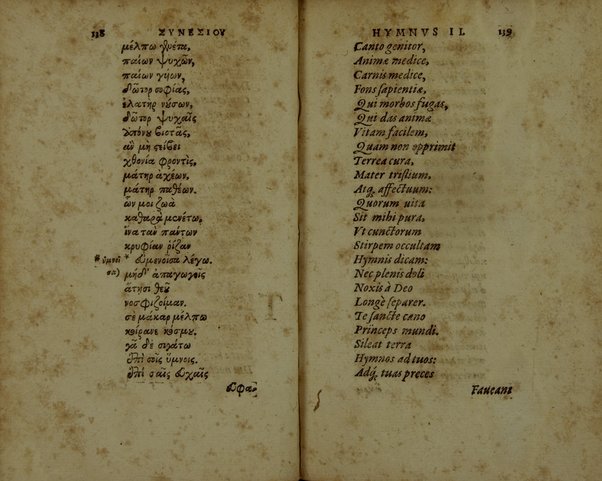 118 ΣΥΝΕΣΙΟΥ
μέλπω γενέτα,
παίων ψυχῶν,
παίων γυίων,
δῶτορ σοφίας,
ἐλατὴρ νούσων,
δῶτορ ψυχαῖς
ἀπόνου βιοτᾶς,
ἂν μὴ στείβει
χθονία φροντὶς,
μάτηρ ἀχέων,
μάτηρ παθέων.
ὧν μοι ζωὰ
καθαρὰ μενέτω,
ἵνα τὰν πάντων
κρυφίαν ῥίζαν
* ὕμνοι * ὑμενοῖσα λέγω.
σα) μηδ' ἀπαγωγοῖς
ἄτῃσι θεοῦ
νοσφιζοίμαν.
σὲ μάκαρ μέλπω
κοίρανε κόσμου.
γᾶ δὲ σιγάτω
ἐπὶ σοῖς ὕμνοις.
ἐπὶ σαῖς εὐχαῖς
εὐφα-
HYMNVS II. 119
Canto genitor,
Animæ medice,
Carnis medice,
Fons sapientiæ,
Qui morbos fugas,
Qui das animæ
Vitam facilem,
Quam non opprimit
Terrea cura,
Mater tristium,
Atq; affectuum:
Quorum uita
Sit mihi pura,
Vt cunctorum
Stirpem occultam
Hymnis dicam:
Nec plenis doli
Noxis à Deo
Longè separer.
Te sancte cano
Princeps mundi.
Sileat terra
Hymnos ad tuos:
Adq́; tuas preces
Faueant